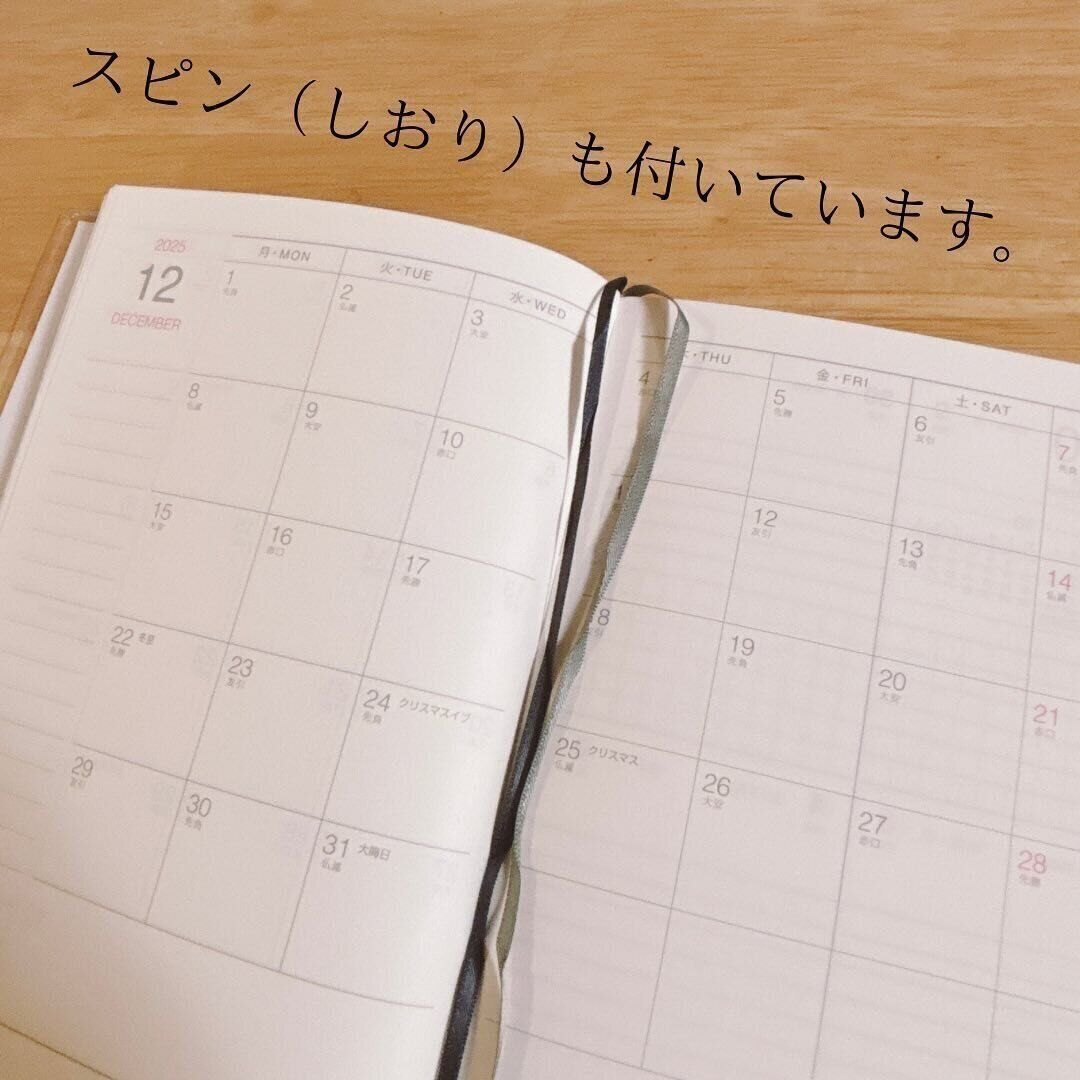 スピン（しおり）も付いています。
2025
12
DECEMBER
月・MON 火・TUE 水・WED
・THU 金・FRI 土・SAT
1 先負 2 仏滅 3 大安
4 赤口 5 先勝 6 友引 7 先負
8 仏滅 9 大安 10 赤口
12 友引 13 先負 14 仏滅
15 大安 16 赤口 17 先勝
18 友引 19 先負 20 大安 21 赤口
22 冬至 先勝 23 友引 24 クリスマスイブ 先負
25 クリスマス 仏滅 26 大安 27 赤口 28 先勝
29 友引 30 先負 31 大晦日 仏滅